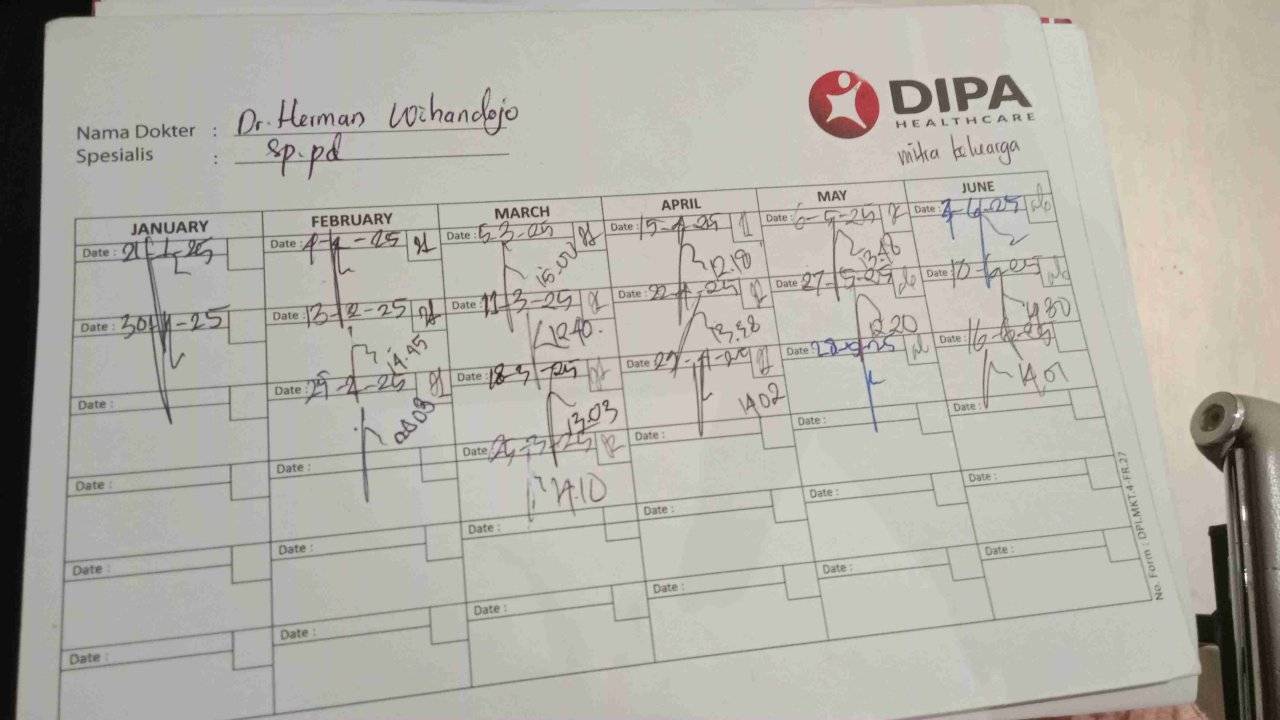 DIPA
HEALTHCARE
Nama Dokter : Dr. Herman Wihandojo
Spesialis : sp.pd
mitra keluarga
JANUARY FEBRUARY MARCH APRIL MAY JUNE
Date : 21-1-25 Date : Date : 5-3-25 Date : 15-4-25 Date : 6-5-25 Date :
15.00 12.10
Date : 30-1-25 Date : 13-2-25 Date : 11-3-25 Date : 22-4-25 Date : 27-5-25 Date : 10-6-25
14.45 12.40. 13.38 12.20 14.30
Date : Date : 25-2-25 Date : 18-3-25 Date : Date : 28-5-25 Date : 16-6-25
13.03 14.02 14.01
Date : Date : Date : 25-3-25 Date : Date : Date :
14.10
Date : Date : Date : Date : Date : Date :
Date : Date : Date : Date : Date : Date :
No. Form : DPI.MKT.4-FR.27